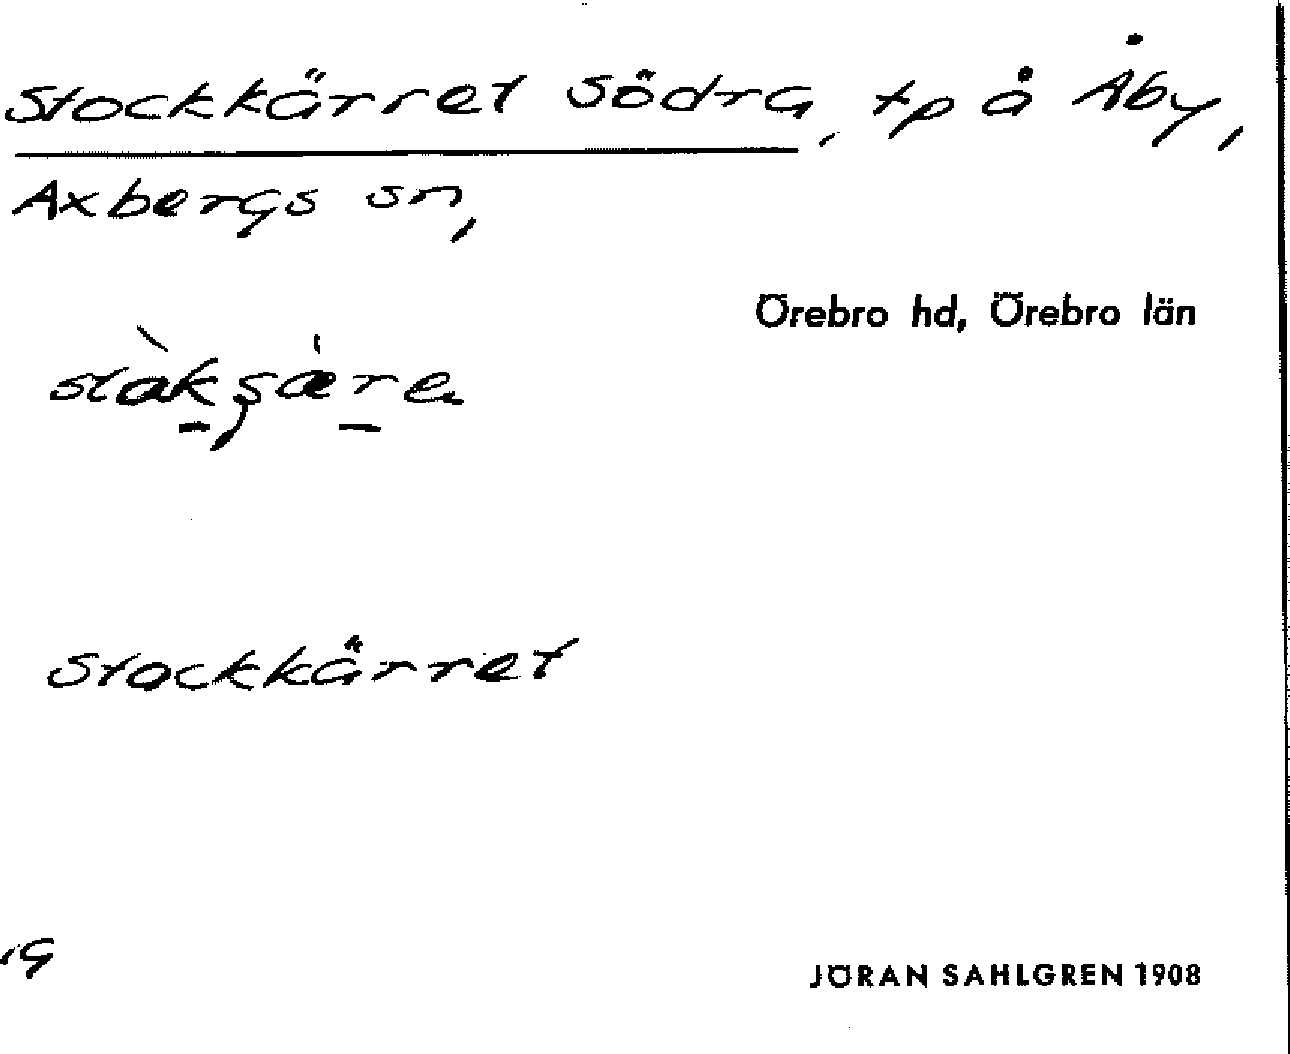 Stockkärret Södra, tp å Åby,
Axbergs sn,
Örebro hd, Örebro län
Stockkärret
JÖRAN SAHLGREN 1908